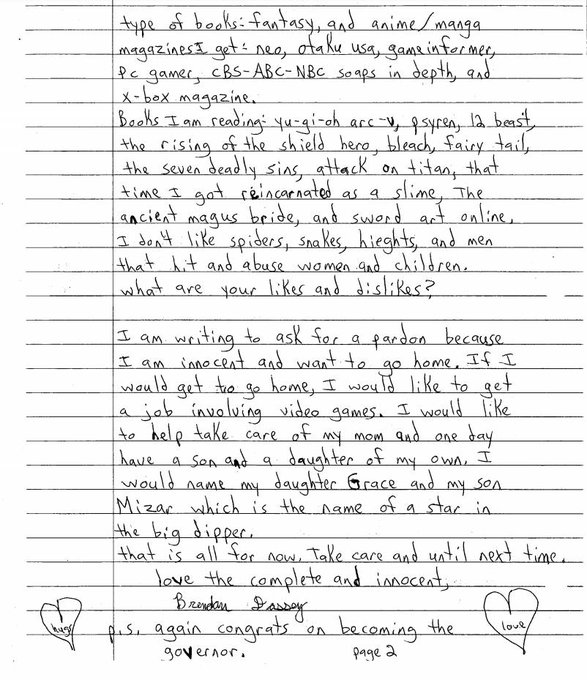 type of books: fantasy, and anime/manga
magazines I get: neo, otaku usa, gameinformer,
Pc gamer, CBS-ABC-NBC soaps in depth, and
X-box magazine.
Books I am reading: yu-gi-oh arc-v, psyren, 12 beast,
the rising of the shield hero, bleach, fairy tail,
the seven deadly sins, attack on titan, that
time I got reincarnated as a slime, The
ancient magus bride, and sword art online.
I don't like spiders, snakes, hieghts, and men
that hit and abuse women and children.
what are your likes and dislikes?
I am writing to ask for a pardon because
I am innocent and want to go home. If I
would get to go home, I would like to get
a job involving video games. I would like
to help take care of my mom and one day
have a son and a daughter of my own. I
would name my daughter Grace and my son
Mizar which is the name of a star in
the big dipper.
that is all for now. Take care and until next time.
love the complete and innocent,
Brendan Dassey
hugs
love
p.s. again congrats on becoming the
governor.
page 2